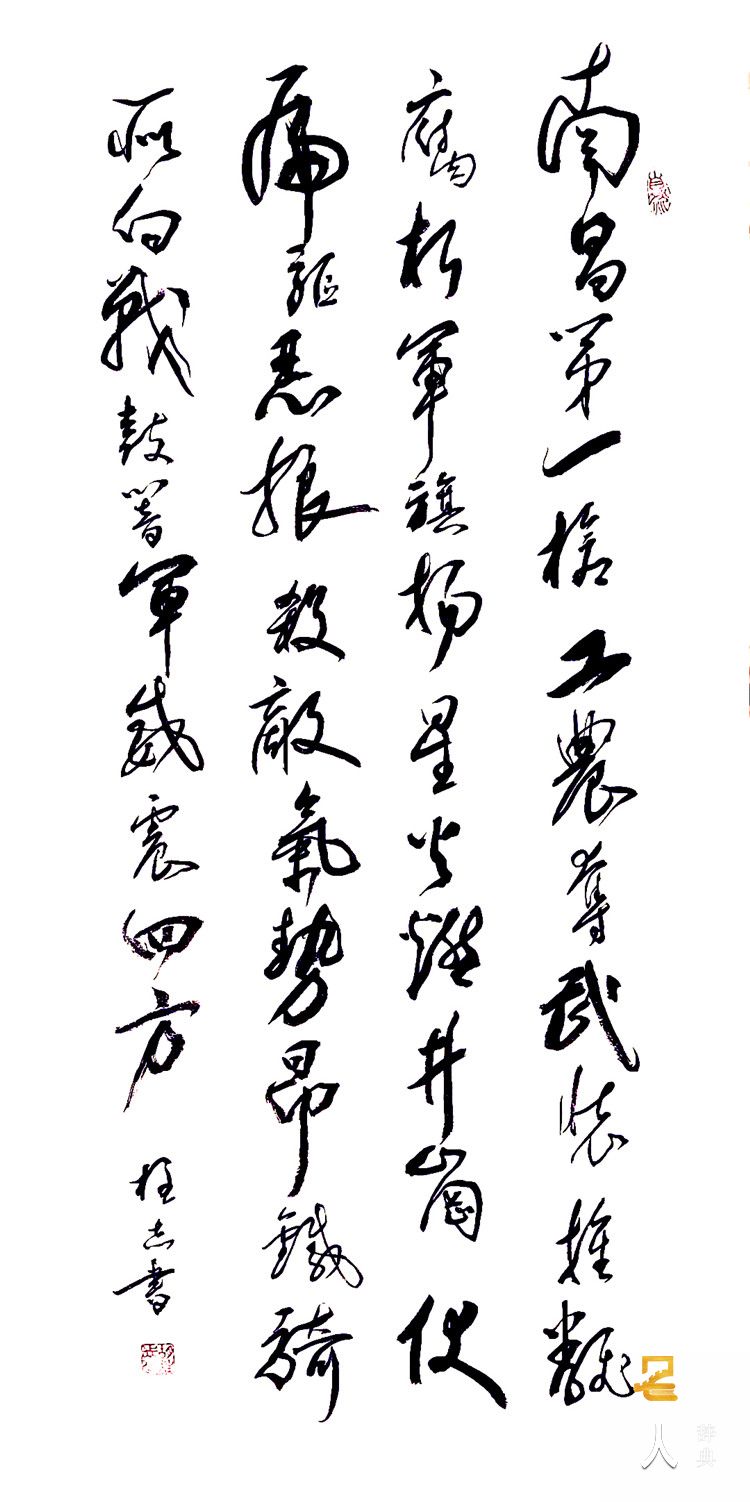 南昌第一槍工農奪武裝推翻
腐朽軍旗揚星火燃井崗伏
虎驅惡狼殺敵氣勢昂鐵騎
所向戰鼓響軍威震四方
志書
人
辞典